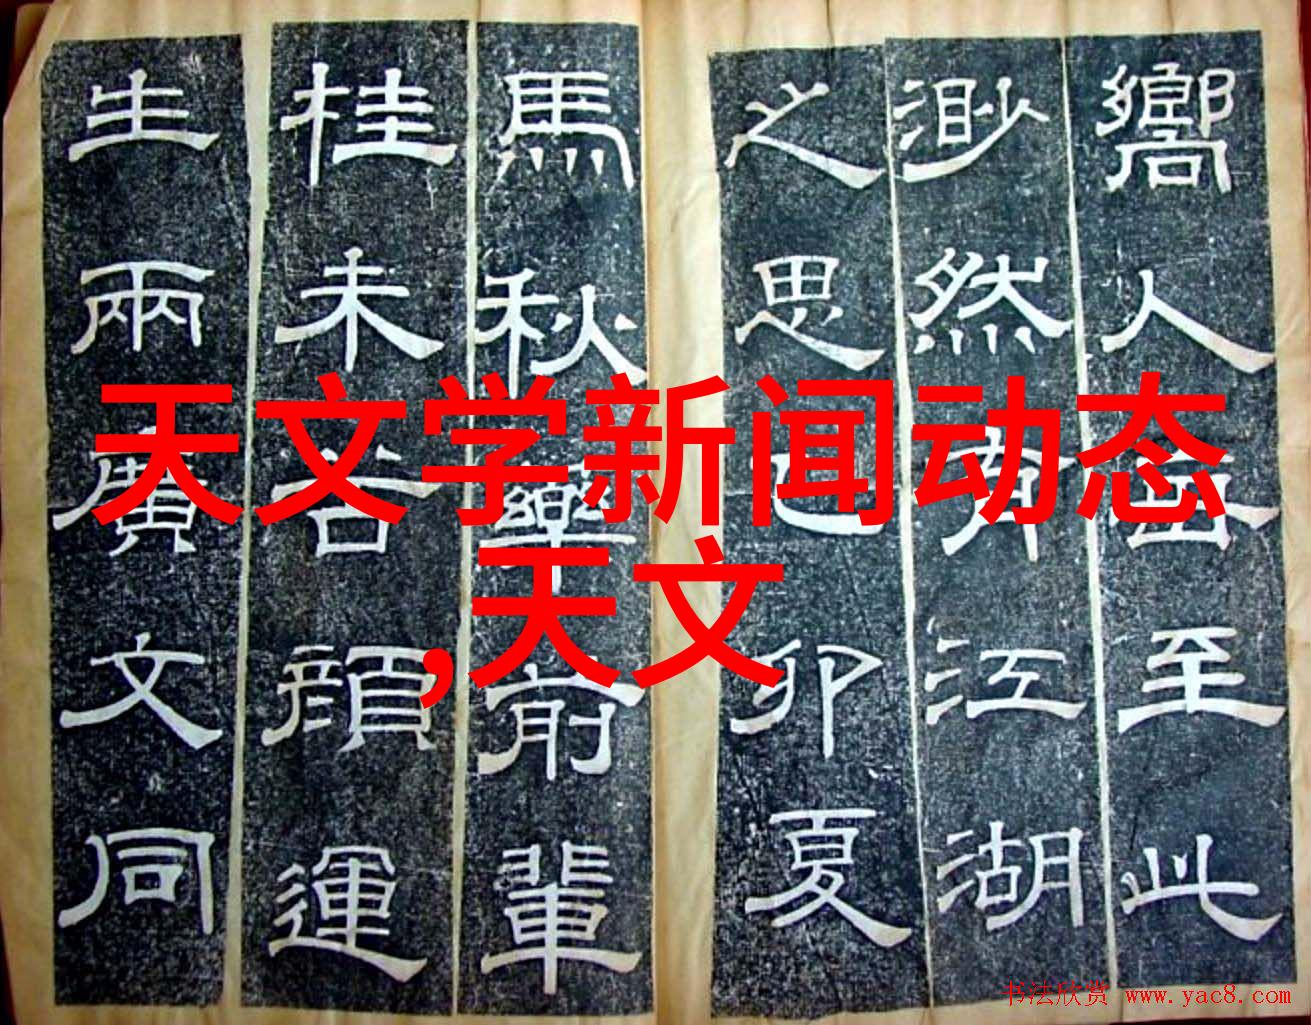 嚮人至此
渺然有江湖
之思己卯夏
馬秋藥前輩
桂未谷顏運
生兩廣文同
天文学新闻动态
,天文
书法欣赏 www.yac8.com